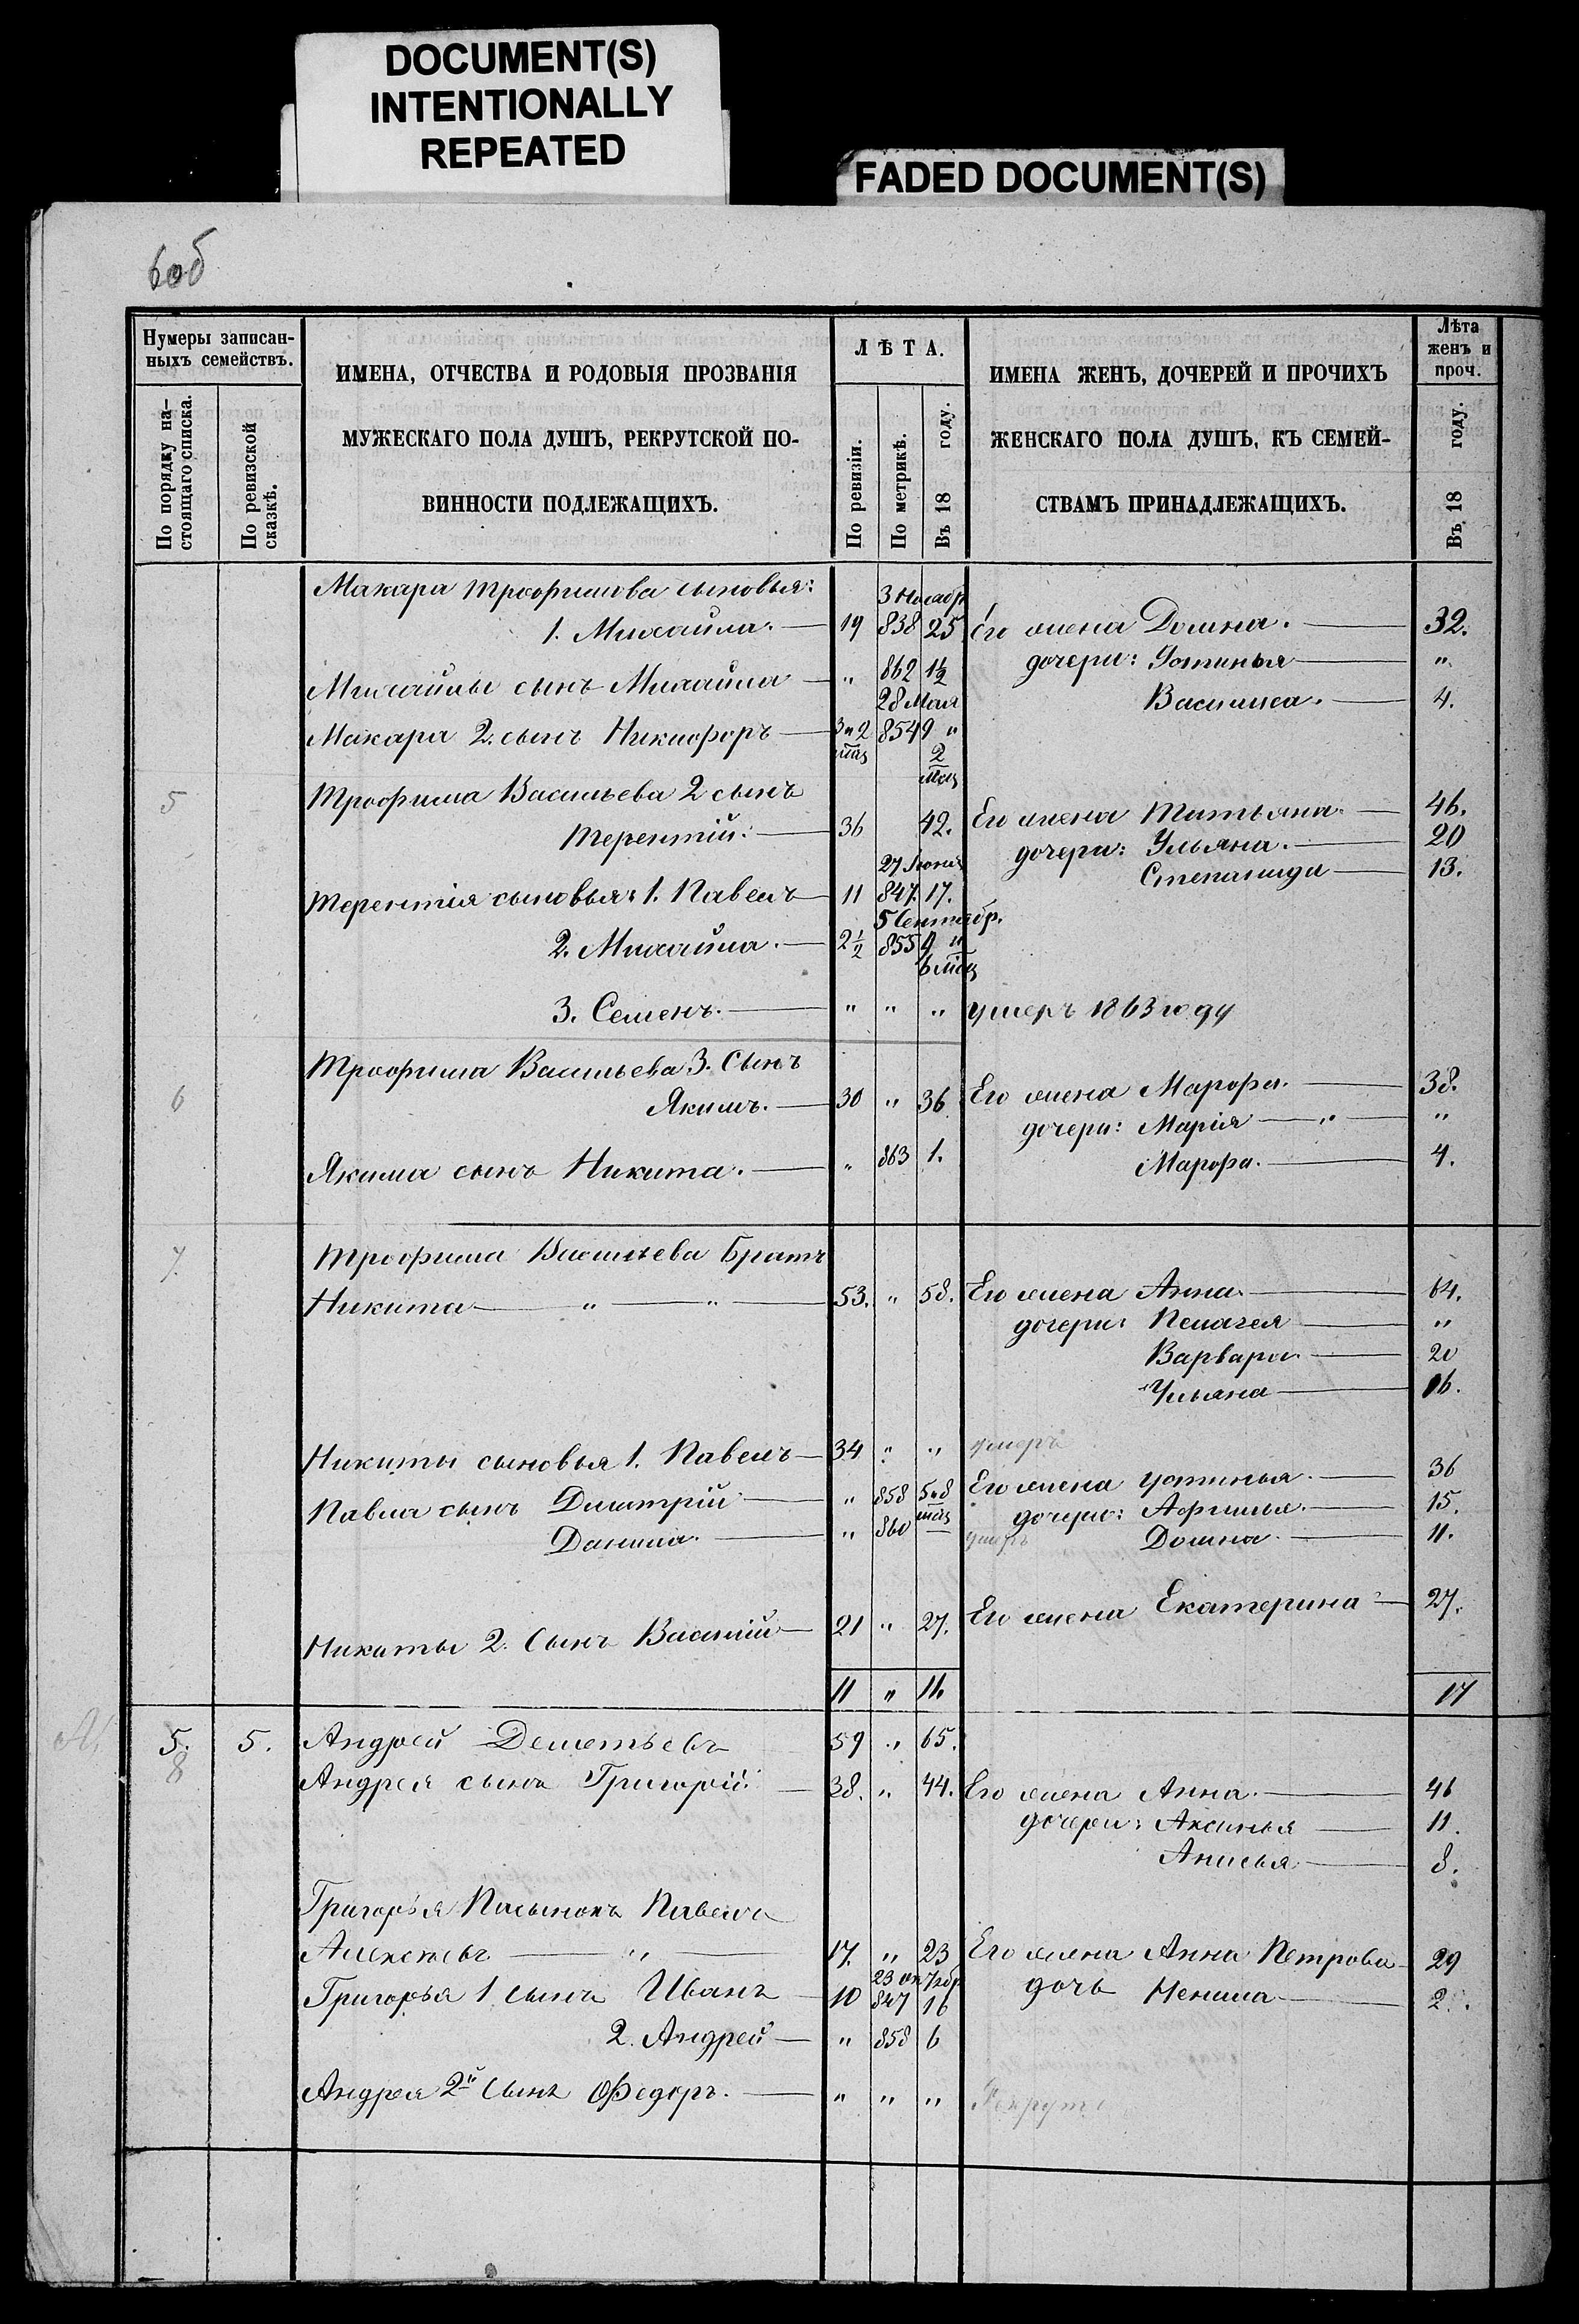 DOCUMENT(S)
INTENTIONALLY
REPEATED
FADED DOCUMENT(S)
6об
Нумеры записан-
ныхъ семействъ.
По порядку на-
стоящаго списка.
По ревизской
сказкѣ.
ИМЕНА, ОТЧЕСТВА И РОДОВЫЯ ПРОЗВАНІЯ
МУЖЕСКАГО ПОЛА ДУШЪ, РЕКРУТСКОЙ ПО-
ВИННОСТИ ПОДЛЕЖАЩИХЪ.
ЛѢТА.
По ревизіи.
По метрикѣ.
Въ 18 году.
ИМЕНА ЖЕНЪ, ДОЧЕРЕЙ И ПРОЧИХЪ
ЖЕНСКАГО ПОЛА ДУШЪ, КЪ СЕМЕЙ-
СТВАМЪ ПРИНАДЛЕЖАЩИХЪ.
Лѣта
женъ и
проч.
Въ 18 году.
Макара Трофимова сыновья:
3 Ноабр
1. Михайла. 19 838 25 Его жена Домна. 32.
дочери: Устинья "
Михайлы сынъ Михайла " 862 1½
Василиса. 4.
28 Мая
Макара 2. сынъ Никифоръ 3 и 2 мѣц 854 9 " 2 мѣц
5 Трофима Васильева 2 сынъ
Терентій. 36 42. Его жена Татьяна. 46.
дочери: Ульяна. 20
27 Июня
Степанида 13.
Терентія сыновья: 1. Павелъ 11 847. 17.
5 Сентабр.
2. Михайла. 2½ 855 9 " 6 мѣц
3. Семенъ. " " " умеръ 1863 году
6 Трофима Васильева 3. Сынъ
Якимъ. 30 " 36 Его жена Марфа. 38.
дочери: Марія " "
Якима сынъ Никита. " 863 1.
Марфа. 4.
7. Трофима Васильева Братъ
Никита " " 53. " 58. Его жена Анна. 64.
дочери: Пелагея "
Варвара 20
Ульяна 16.
Никиты сыновья 1. Павелъ 34 " " умеръ
Его жена Устинья. 36
Павла сынъ Дмитрій " 858 5 и 8 мѣц
дочери: Афимья. 15.
Данила. " 860 — умеръ
Домна. 11.
Никиты 2. Сынъ Василій 21 " 27. Его жена Екатерина 27.
11 " 11. 17
5. 5. Андрей Дементьевъ 59 " 65.
8
Андрея сынъ Григорій. 38. " 44. Его жена Анна. 46
дочери: Аксинья 11.
Анисья 8.
Григорья Пасынокъ Павелъ
Алексѣевъ " 17. " 23 Его жена Анна Петрова 29
23 октябр
Григорья 1 сынъ Иванъ 10 847 16
дочь Ненила 2.
2. Андрей " 858 6
Андрея 2й Сынъ Федоръ. " " " Рекрутъ